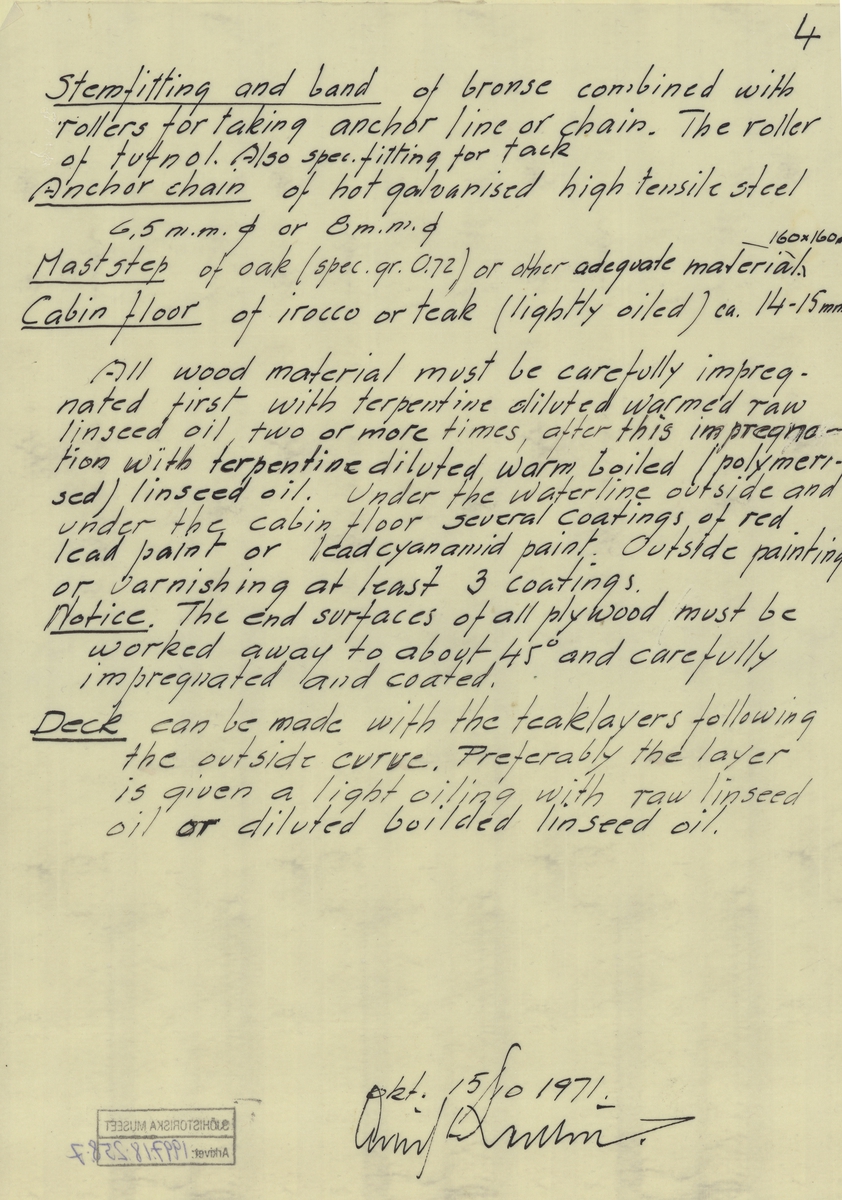 4
Stemfitting and band of bronse combined with
rollers for taking anchor line or chain. The roller
of tufnol. Also spec. fitting for tack
Anchor chain of hot galvanised high tensile steel
6,5 m.m. ϕ or 8 m.m. ϕ
160x160
Maststep of oak (spec. gr. 0.72) or other adequate material.
Cabin floor of irocco or teak (lightly oiled) ca. 14-15 mm
All wood material must be carefully impreg-
nated first with terpentine diluted warmed raw
linseed oil, two or more times, after this impregna-
tion with terpentine diluted warm boiled (polymeri-
sed) linseed oil. Under the waterline outside and
under the cabin floor several coatings of red
lead paint or leadcyanamid paint. Outside painting
or varnishing at least 3 coatings.
Notice. The end surfaces of all plywood must be
worked away to about 45° and carefully
impregnated and coated.
Deck can be made with the teaklayers following
the outside curve. Preferably the layer
is given a light oiling with raw linseed
oil or diluted boilded linseed oil.
okt. 15/10 1971.
SJÖHISTORISKA MUSEET
Arkivet: